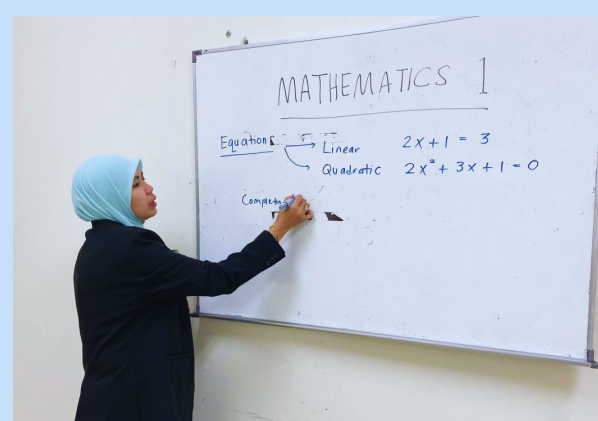 MATHEMATICS 1
Equations → Linear 2x + 1 = 3
→ Quadratic 2x² + 3x + 1 = 0